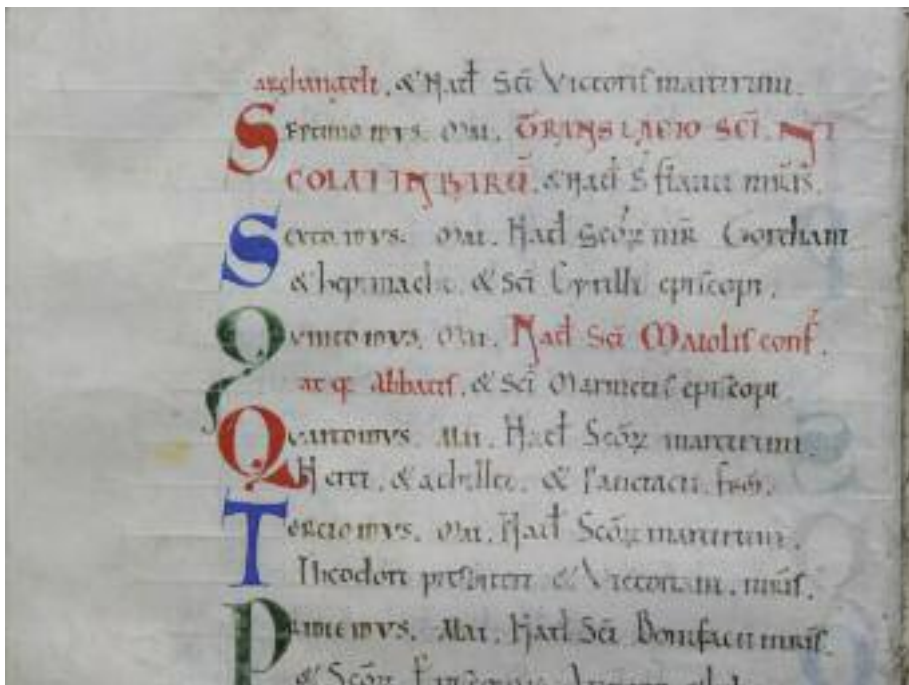 archangeli, & Nat̄ Sc̄i Victoris martirum.
Septimo idvs. Mai. TRANSLACIO SC̄I. NI
COLAI IN BARŪ. & Nat̄ S̄
Sexto idvs. Mai. Nat̄ Sc̄oꝝ Gordiani
& Sc̄i Cyrilli episcopi.
Quinto idvs. Mai. Nat̄ Sc̄i Maiolis conf̄.
at q; abbatis, & Sc̄i episcopi
Quarto idvs. Mai. Nat̄ Sc̄oꝝ martirum
Nerei, & achillei, & Pancracii.
Tercio idvs. Mai. Nat̄ Sc̄oꝝ martirum.
Theodori presbiteri &
Pridie idvs. Mai. Nat̄ Sc̄i Bonifacii
& Sc̄oꝝ